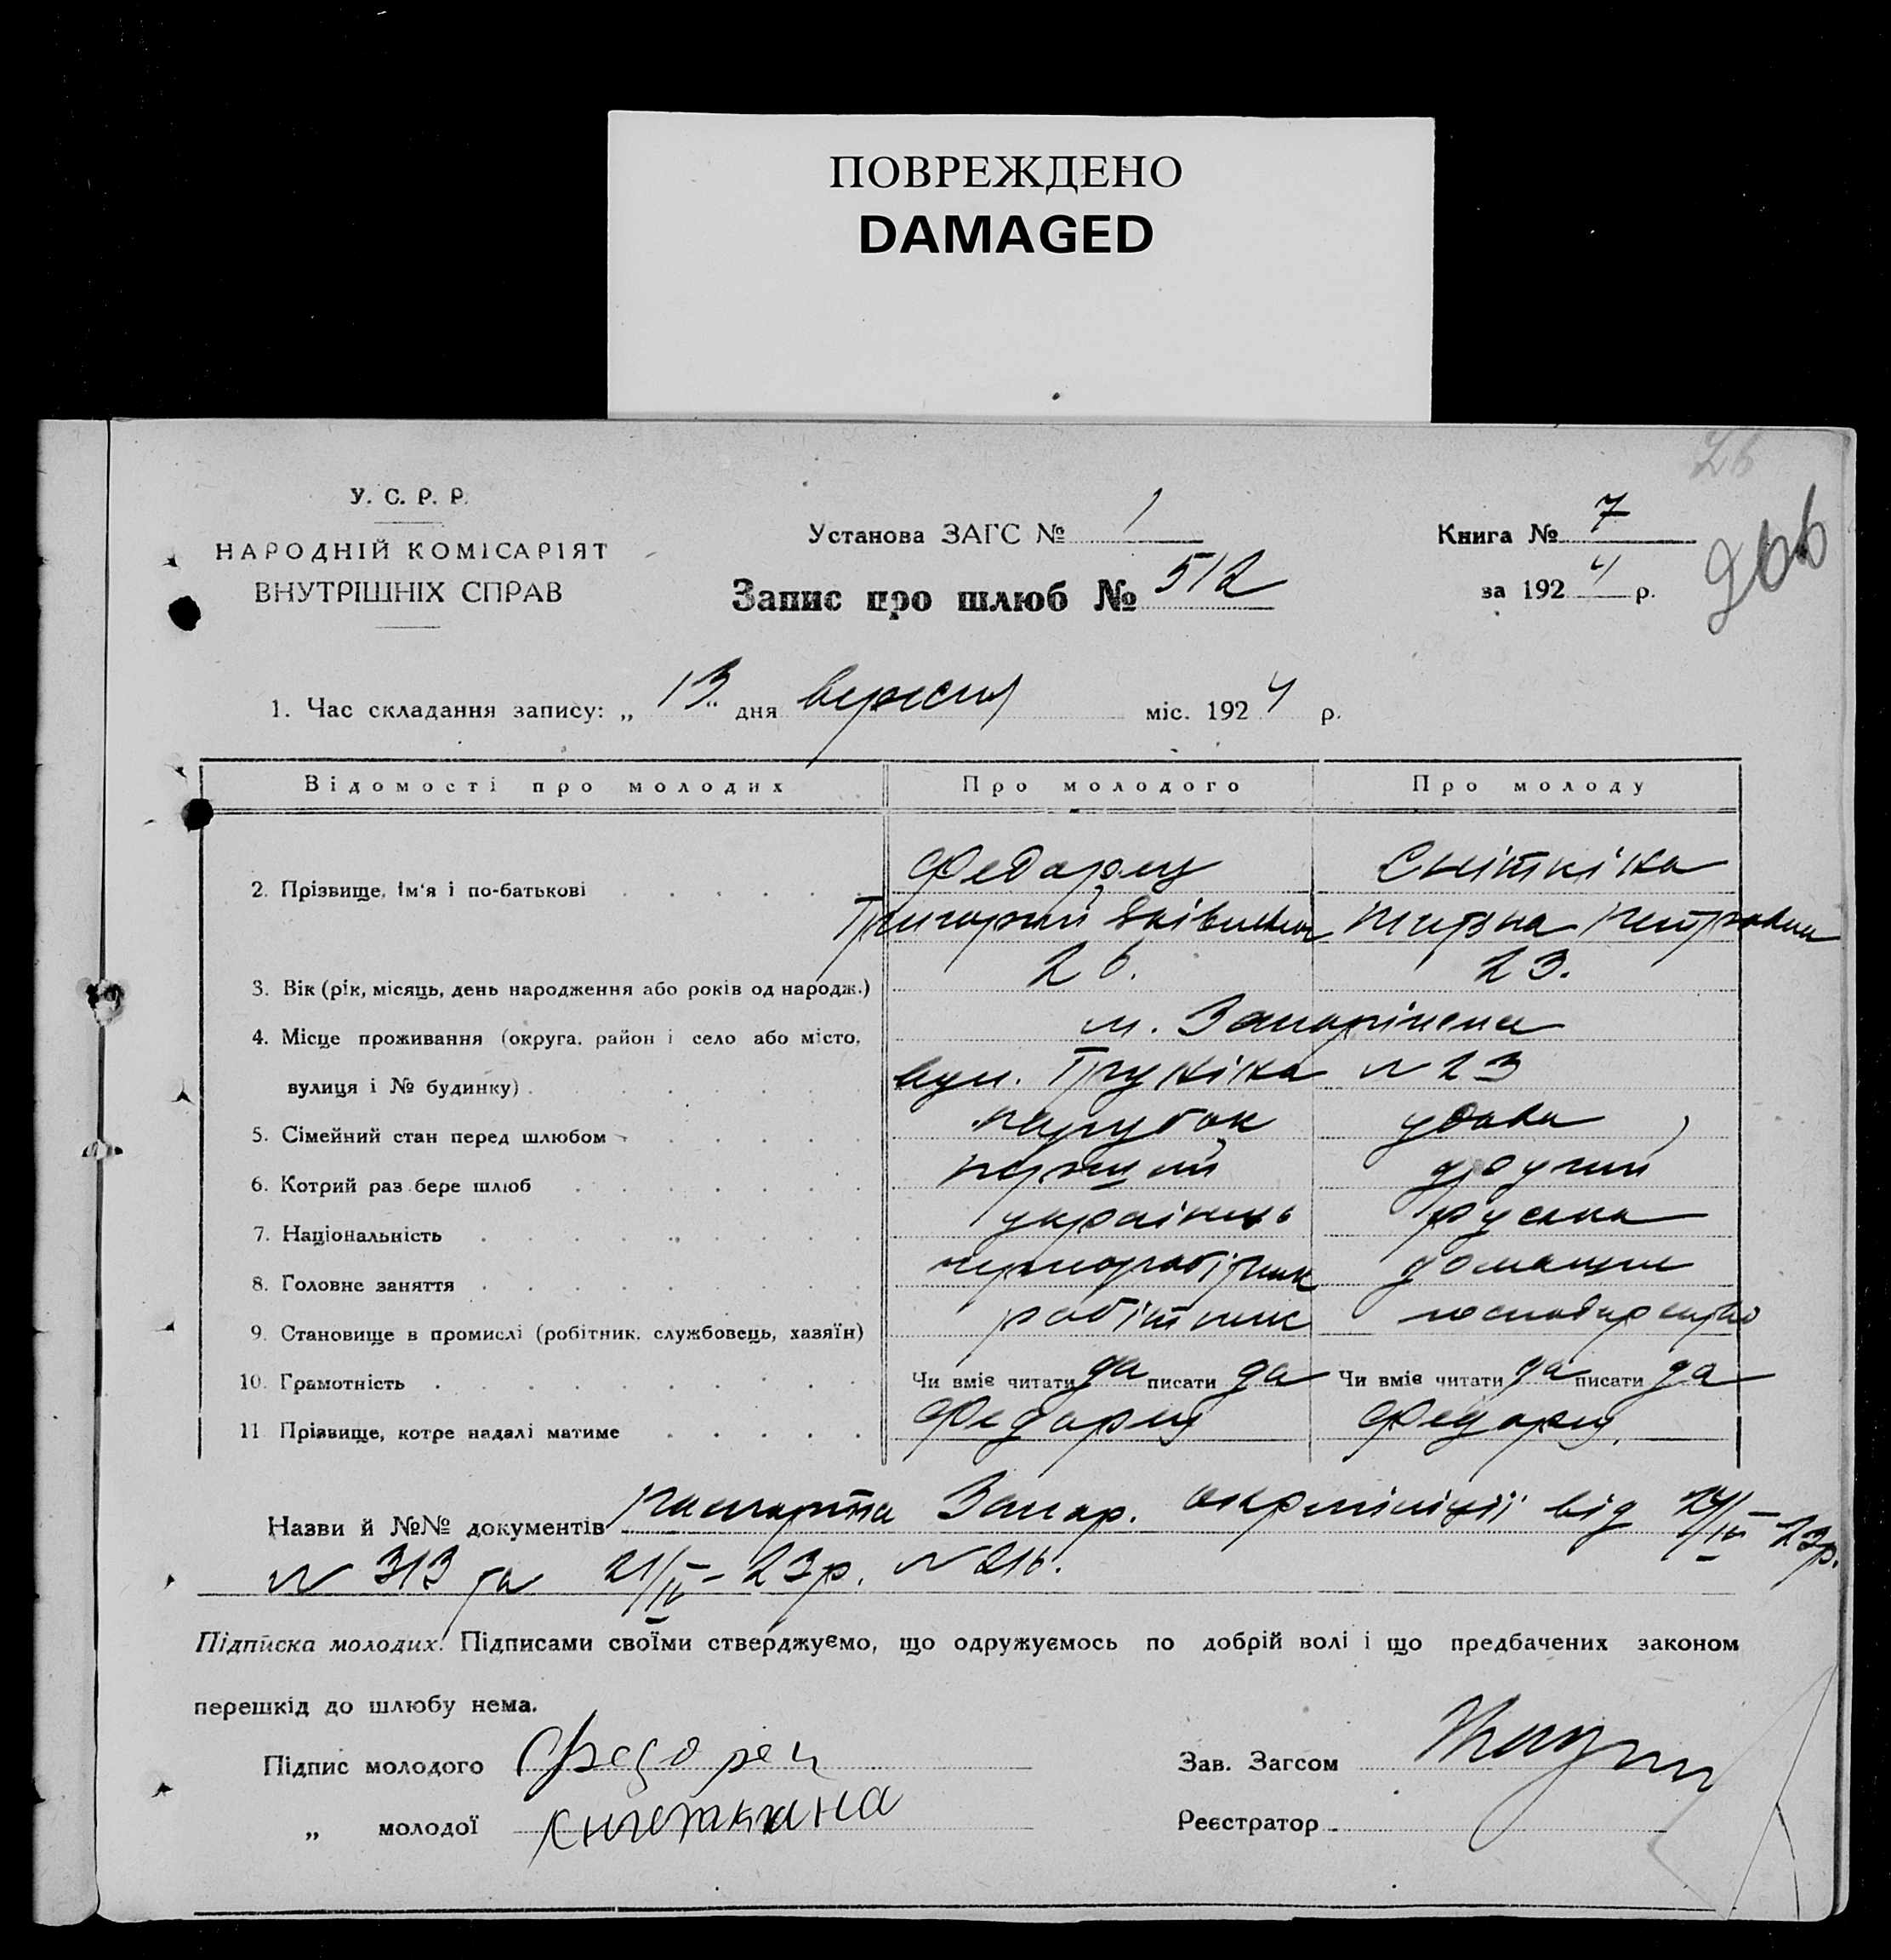 ПОВРЕЖДЕНО
DAMAGED
26
У. С. Р. Р.
НАРОДНІЙ КОМІСАРІЯТ
ВНУТРІШНІХ СПРАВ
Установа ЗАГС № 1
Запис про шлюб № 512
Книга № 7
за 1924 р.
266
1. Час складання запису: „ 13 " дня вересня міс. 1924 р.
Відомості про молодих Про молодого Про молоду
2. Прізвище, Ім'я і по-батькові Федорец Сніткіна
Григорий Яківлевич Петровна
3. Вік (рік, місяць, день народження або років од народж.) 26. 23.
4. Місце проживання (округа, район і село або місто, м. Запоріжжя
вулиця і № будинку) вул. № 23
5. Сімейний стан перед шлюбом парубок удова
6. Котрий раз бере шлюб перший другий
7. Національність українець руська
8. Головне заняття чорноробітник домашнє
9. Становище в промислі (робітник, службовець, хазяїн) робітник господарство
10. Грамотність Чи вміє читати да писати да Чи вміє читати да писати да
11. Прізвище, котре надалі матиме Федорец Федорец
Назви й №№ документів паспорта Запор. окрміліції від /IV - 23р.
№ 313 та 21/IV - 23р. № 216.
Підписка молодих. Підписами своїми стверджуємо, що одружуємось по добрій волі і що предбачених законом
перешкід до шлюбу нема.
Підпис молодого Федорец
Зав. Загсом
„ молодої Снитткина
Реєстратор